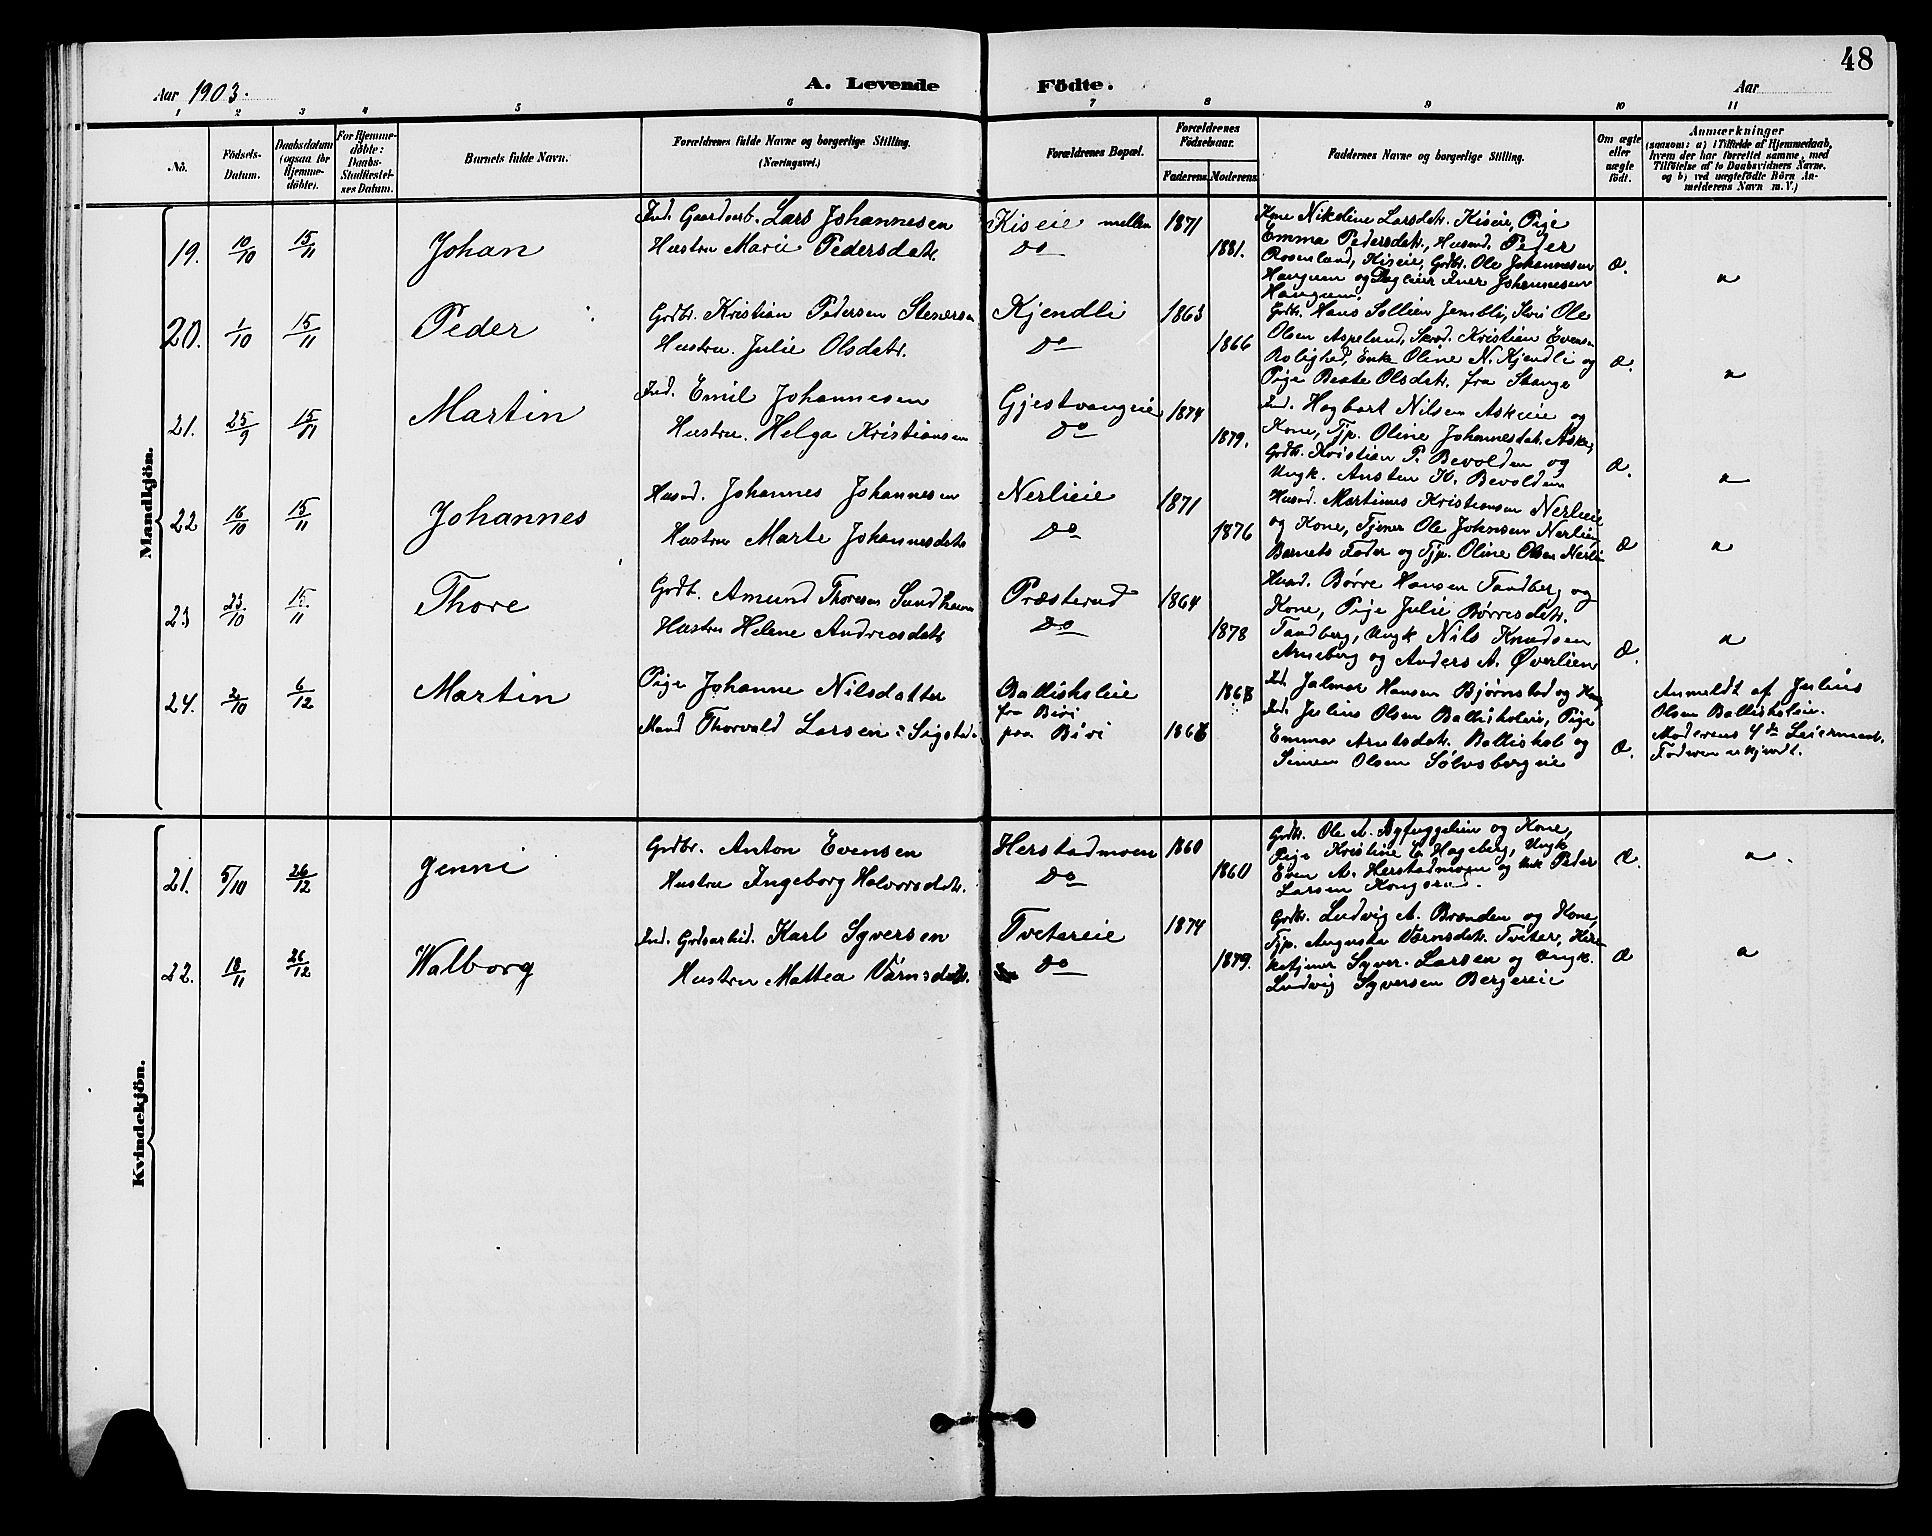 48
Aar 1903.
A. Levende Födte.
Aar
1 2 3 4 5 6 7 8 9 10 11
No.
Födsels-
Datum.
Daabsdatum
(ogsaa for
Hjemme-
döbte).
For Hjemme-
döbte:
Daabs-
Stadfæstel-
ses Datum.
Barnets fulde Navn.
Forældrenes fulde Navne og borgerlige Stilling.
(Næringsvei.)
Forældrenes Bopæl.
Forældrenes
Födselsaar.
Faderens. Moderens.
Faddernes Navne og borgerlige Stilling.
Om ægte
eller
uægte
født.
Anmærkninger
(saasom: a) i Tilfælde af Hjemmedaab,
hvem der har forrettet samme, med
Tilföielse af to Daabsvidners Navne.
og b) ved uægtefödte Börn An-
melderens Navn m. V.)
Mandkjön.
19. 10/10 15/11 Johan
Ind. Gaardarb. Lars Johannesen
Hustru Marie Pedersdatr.
Kiseie mellem
Do
1871
1881.
Kone Nikoline Larsdatr. Kiseie, Pige
Emma Pedersdatr., Husmd. Peder
Rosenlund, Kiseie, Grdbr. Ole Johannesen
Haugum og Iver Johannesen
Haugum.
Æ.
"
20. 1/10 15/11 Peder
Grdbr. Kristian Pedersen Stenersen
Hustru. Julie Olsdatr.
Kjendli
Do
1863
1866
Grdbr. Hans Sollien Jembli, Ole
Olsen Aspelund, Skræd. Kristian Evensen
Rolighed, Enke Oline N. Kjendli og
Pige Beate Olsdatr. fra Stange
Æ.
"
21. 25/9 15/11 Martin
Ind. Emil Johannesen
Hustru. Helga Kristiansen
Gjestvangeie
Do
1874
1879.
Ind. Hagbart Nilsen Askeie og
Kone, Tjp. Oline Johannesdatr. Aske,
Grdbr. Kristian P. Bevolden og
Ungk. Austen K. Bevolden
Æ.
"
22 16/10 15/11 Johannes
Husmd. Johannes Johannesen
Hustru Marte Johannesdatr.
Nerlieie
Do
1871
1876
Husmd. Martinus Kristiansen Nerlieie
og Kone, Tjener Ole Johnsen Nerlien
Barnets Fader og Tjp. Oline Olsen Nerli
Æ
"
23 23/10 15/11 Thore
Grdb. Amund Thoresen Sundheim
Hustru Helene Andreasdatr.
Præsterud
Do
1864
1878
Husmd. Børre Hansen Tandberg og
Kone, Pige Julie Børresdatr.
Tandberg, Ungk Nils Knudsen
Arneberg og Anders A. Øverlien
Æ.
"
24. 2/10 6/12 Martin
Pige Johanne Nilsdatter
Mand Thorvald Larsen Sigstad
Ballishøleie
fra Biri
paa Biri
1868
1866
Ind. Jalmar Hansen Bjørnstad og Kone,
Ind. Julius Olsen Ballisholeie, Pige
Emma Arntsdatr. Ballishol og
Simen Olsen Sølvsbergeie
Æ.
Anmeldt af Julius
Olsen Ballisholeie.
Moderens 4de Leiermaal.
Faderen erkjendt.
Kvindekjön.
21. 5/10 26/12 Jenni
Grdbr. Anton Evensen
Hustru Ingeborg Halvorsdatr.
Herstadmoen
Do
1860
1860
Grdbr. Ole A. og Kone,
Pige Kristine E Hageberg, Ungk
Even A. Herstadmoen og Ungk Peder
Larsen
Æ.
"
22. 18/11 26/12 Walborg
Ind. Grdsarbid. Karl Syversen
Hustru Mattea Vårnsdatr.
Tvetereie
Do
1874
1879.
Grdbr. Ludvig A. Brænden og Kone,
Tjp. Augusta Vårnsdatr. Tveter, Kir-
ketjener Syver Larsen og Ungk.
Ludvig Syversen Bergereie
Æ
"